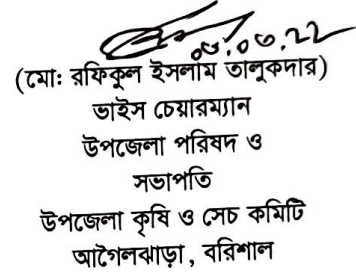 ০৩.০৩.২২
(মো: রফিকুল ইসলাম তালুকদার)
ভাইস চেয়ারম্যান
উপজেলা পরিষদ ও
সভাপতি
উপজেলা কৃষি ও সেচ কমিটি
আগৈলঝাড়া, বরিশাল